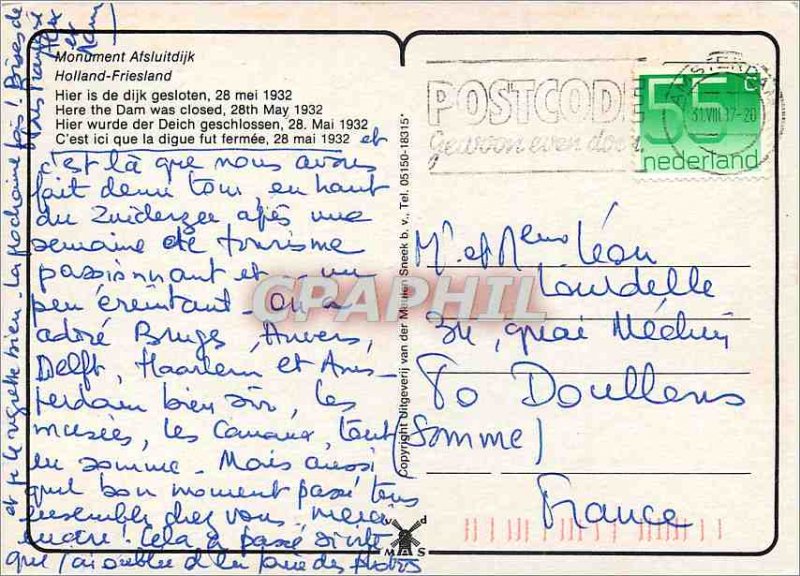 Monument Afsluitdijk
Holland-Friesland
Hier is de dijk gesloten, 28 mei 1932
Here the Dam was closed, 28th May 1932
Hier wurde der Deich geschlossen, 28. Mai 1932
C'est ici que la digue fut fermée, 28 mai 1932
et
c'est là que nous avons
fait demi tour, en haut
du Zuiderzee après une
semaine de tourisme
passionnant et un
peu éreintant - on a
adoré Bruges, Anvers,
Delft, Haarlem et Ams-
terdam bien sûr, les
musées, les canaux, tout
en somme. Mais aussi
quel bon moment passé tous
ensemble chez vous, merci
encore! Cela a passé si vite
que j'ai oublié de faire des photos
et je le regrette bien. La prochaine fois! Bises de
et
Copyright Uitgeverij van der Meulen Sneek b.v., Tel. 05150-18315*
v d
MAS
POSTCODE
Gewoon even doen
AMSTERDA
31.VIII.17-20
55 c
nederland
Mr et Léon
Lourdelle
34, quai
To Doullens
(Somme)
France
CPAPHIL